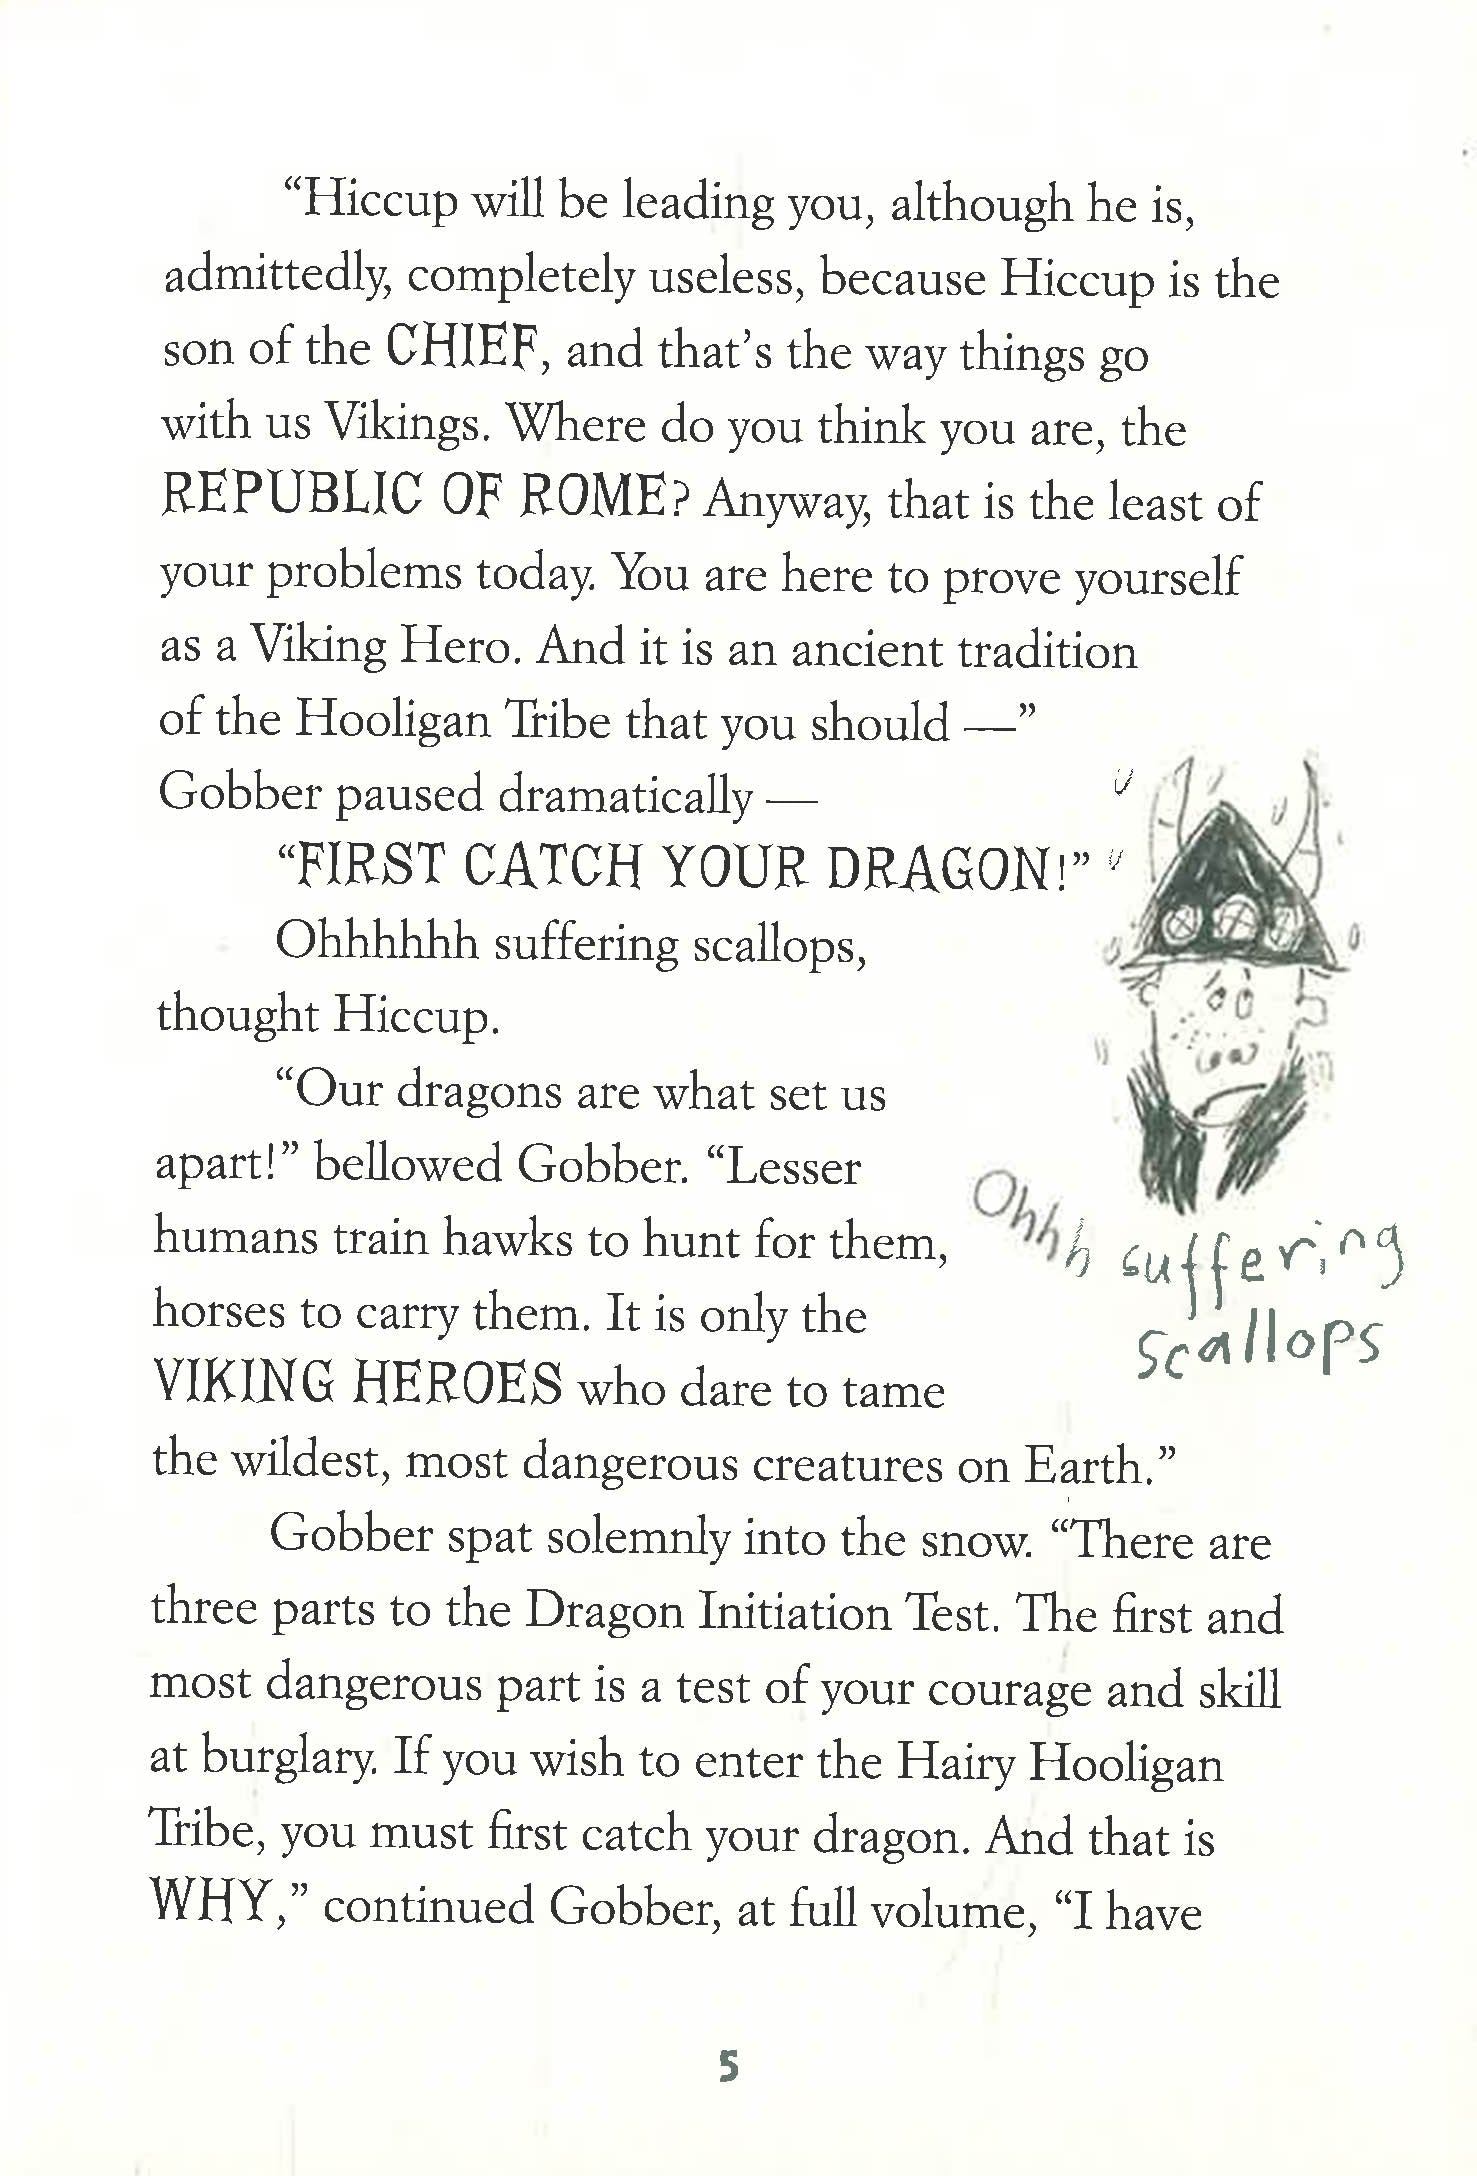 “Hiccup will be leading you, although he is,
admittedly, completely useless, because Hiccup is the
son of the CHIEF, and that’s the way things go
with us Vikings. Where do you think you are, the
REPUBLIC OF ROME? Anyway, that is the least of
your problems today. You are here to prove yourself
as a Viking Hero. And it is an ancient tradition
of the Hooligan Tribe that you should —”
Gobber paused dramatically —
“FIRST CATCH YOUR DRAGON!”
Ohhhhhh suffering scallops,
thought Hiccup.
“Our dragons are what set us
apart!” bellowed Gobber. “Lesser
humans train hawks to hunt for them,
horses to carry them. It is only the
VIKING HEROES who dare to tame
the wildest, most dangerous creatures on Earth.”
Ohhh suffering
scallops
Gobber spat solemnly into the snow. “There are
three parts to the Dragon Initiation Test. The first and
most dangerous part is a test of your courage and skill
at burglary. If you wish to enter the Hairy Hooligan
Tribe, you must first catch your dragon. And that is
WHY,” continued Gobber, at full volume, “I have
5